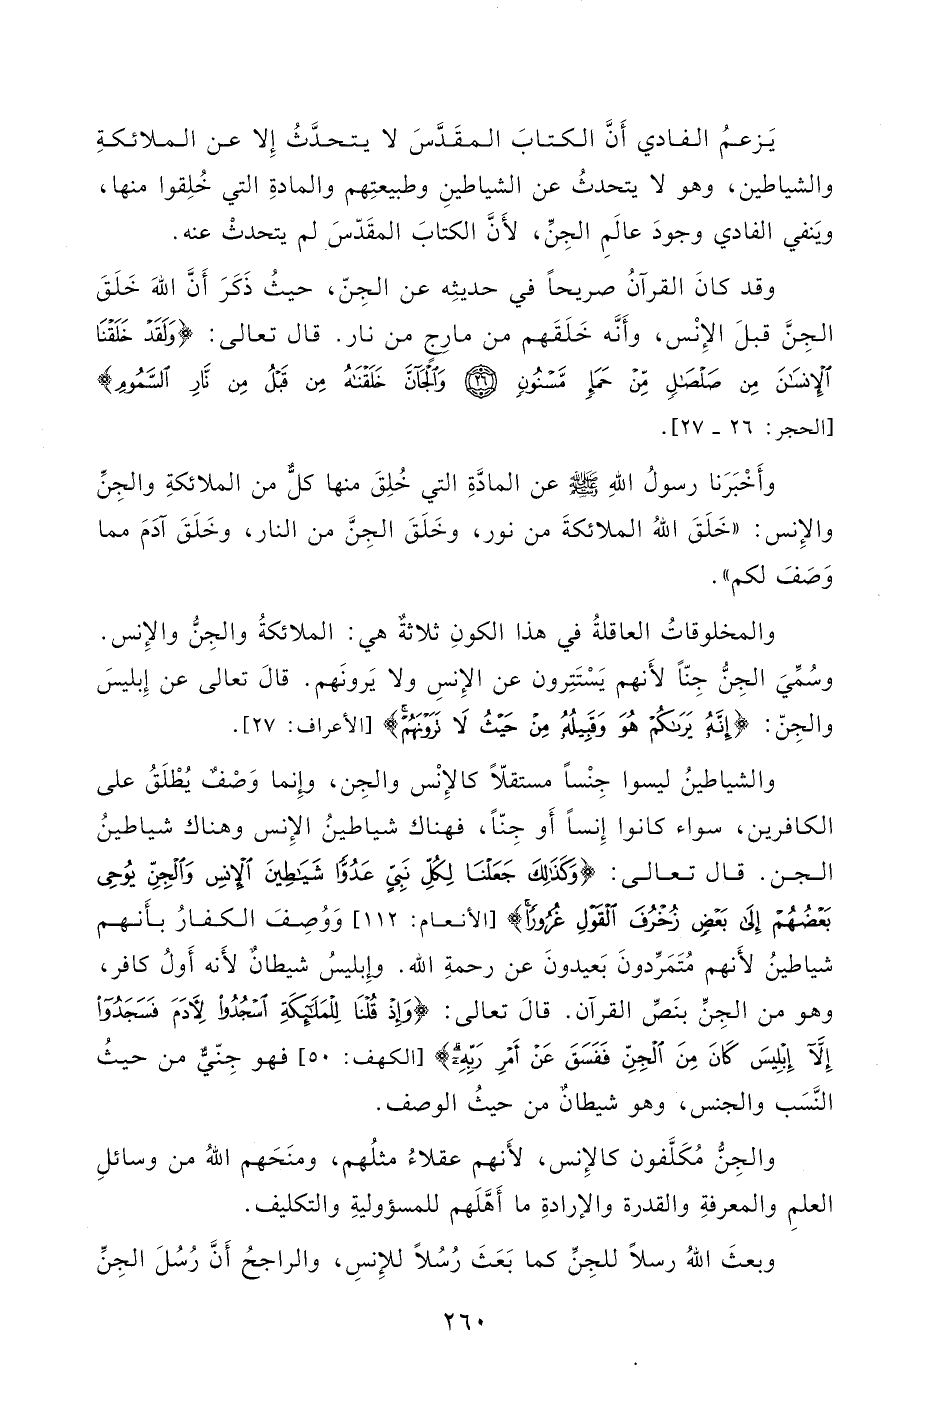 يَزعمُ الفادي أَنَّ الكتابَ المقَدَّسَ لا يتحدَّثُ إِلا عن الملائكةِ
والشياطين، وهو لا يتحدثُ عن الشياطينِ وطبيعتِهم والمادةِ التي خُلِقوا منها،
ويَنفي الفادي وجودَ عالَمِ الجِنِّ، لأَنَّ الكتابَ المقَدّسَ لم يتحدثْ عنه.
وقد كانَ القرآنُ صريحاً في حديثِه عن الجِنّ، حيثُ ذَكَرَ أَنَّ اللهَ خَلَقَ
الجِنَّ قبلَ الإِنْس، وأَنَّه خَلَقَهم من مارجٍ من نار. قال تعالى: ﴿وَلَقَدْ خَلَقْنَا
ٱلْإِنسَٰنَ مِن صَلْصَٰلٍ مِّنْ حَمَإٍ مَّسْنُونٍ ۝٢٦ وَٱلْجَآنَّ خَلَقْنَٰهُ مِن قَبْلُ مِن نَّارِ ٱلسَّمُومِ﴾
[الحجر: ٢٦ ـ ٢٧].
وأَخْبَرَنا رسولُ اللهِ ﷺ عن المادَّةِ التي خُلِقَ منها كلٌّ من الملائكةِ والجِنِّ
والإِنس: «خَلَقَ اللهُ الملائكةَ من نور، وخَلَقَ الجِنَّ من النار، وخَلَقَ آدَمَ مما
وَصَفَ لكم».
والمخلوقاتُ العاقلةُ في هذا الكونِ ثلاثةٌ هي: الملائكةُ والجِنُّ والإِنس.
وسُمِّيَ الجِنُّ جِنّاً لأَنهم يَسْتَتِرون عن الإِنسِ ولا يَرونَهم. قالَ تعالى عن إِبليسَ
والجِنّ: ﴿إِنَّهُۥ يَرَىٰكُمْ هُوَ وَقَبِيلُهُۥ مِنْ حَيْثُ لَا تَرَوْنَهُمْ﴾ [الأعراف: ٢٧].
والشياطينُ ليسوا جِنْساً مستقلّاً كالإِنْس والجِن، وإِنما وَصْفٌ يُطْلَقُ على
الكافرين، سواء كانوا إِنساً أَو جِنّاً، فهناك شياطينُ الإِنس وهناك شياطينُ
الجن. قال تعالى: ﴿وَكَذَٰلِكَ جَعَلْنَا لِكُلِّ نَبِيٍّ عَدُوًّا شَيَٰطِينَ ٱلْإِنسِ وَٱلْجِنِّ يُوحِى
بَعْضُهُمْ إِلَىٰ بَعْضٍ زُخْرُفَ ٱلْقَوْلِ غُرُورًا﴾ [الأنعام: ١١٢] وَوُصِفَ الكفارُ بأَنهم
شياطينُ لأَنهم مُتَمَرِّدونَ بَعيدونَ عن رحمةِ الله. وإِبليسُ شيطانٌ لأَنه أَولُ كافر،
وهو من الجِنِّ بنَصِّ القرآن. قالَ تعالى: ﴿وَإِذْ قُلْنَا لِلْمَلَٰٓئِكَةِ ٱسْجُدُوا۟ لِـَٔادَمَ فَسَجَدُوٓا۟
إِلَّآ إِبْلِيسَ كَانَ مِنَ ٱلْجِنِّ فَفَسَقَ عَنْ أَمْرِ رَبِّهِۦٓ﴾ [الكهف: ٥٠] فهو جِنّيٌّ من حيثُ
النَّسَب والجنس، وهو شيطانٌ من حيثُ الوصف.
والجِنُّ مُكَلَّفون كالإِنس، لأَنهم عقلاءُ مثلُهم، ومنَحَهم اللهُ من وسائلِ
العلمِ والمعرفةِ والقدرة والإرادةِ ما أَهَّلَهم للمسؤوليةِ والتكليف.
وبعثَ اللهُ رسلاً للجِنِّ كما بَعَثَ رُسُلاً للإِنسِ، والراجحُ أَنَّ رُسُلَ الجِنِّ
٢٦٠